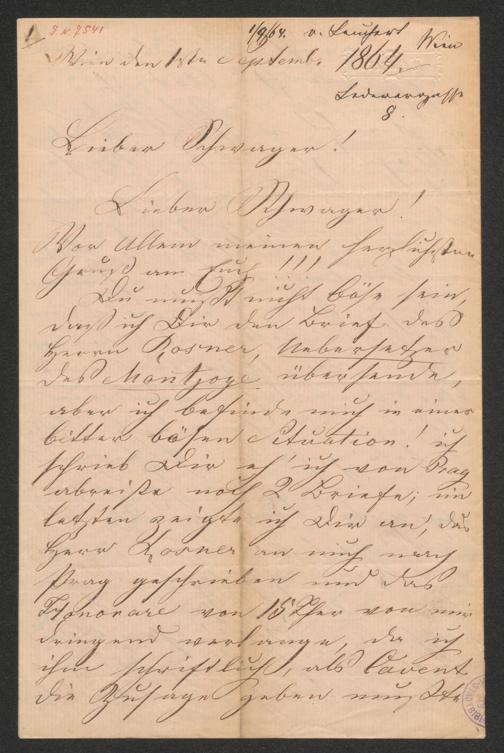 1
J. N. 7541
1/9/64. v. Leuchert Wien
Wien den 1ten Septemb. 1864.
Lederergasse
8.
Lieber Schwager!
Lieber Schwager!
Vor Allem meinen herzlichsten
Gruß an Euch !!!
Du mußt nicht böse sein,
daß ich Dir den Brief des
Herrn Rosner, Uebersetzer
des Montjoye, übersende,
aber ich befinde mich in einer
bitter bösen Situation! ich
schrieb Dir eh' ich von Prag
abreiste noch 2 Briefe; im
letzten zeigte ich Dir an, daß
Herr Rosner an mich nach
Prag geschrieben und das
Honorare von 15 von mir
dringend verlange, da ich
ihm schriftlich, als Cavent
die Zusage geben mußte